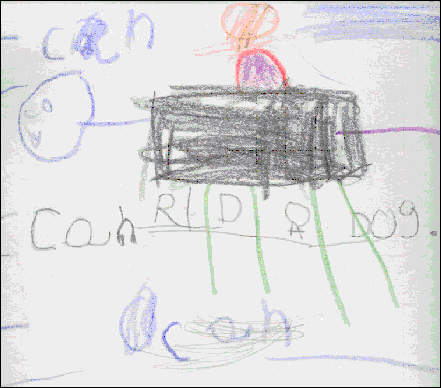 can
Can RID A DOG.
can